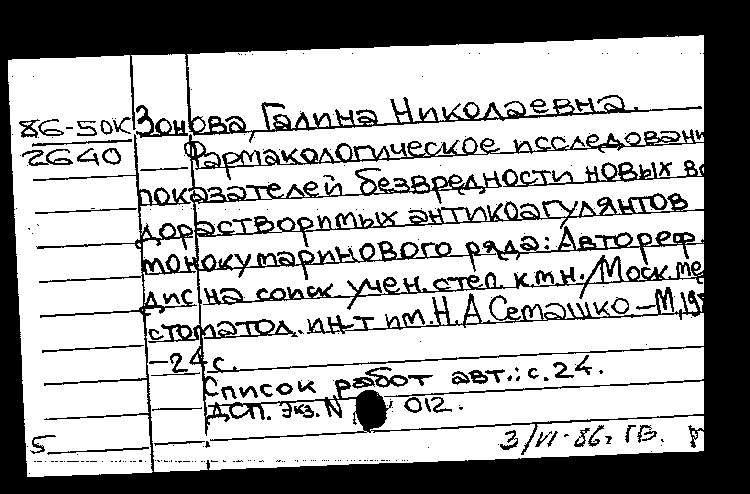 86-50К Зонова, Галина Николаевна.
2640 Фармакологическое исследовани
показателей безвредности новых во
дорастворимых антикоагулянтов
монокумаринового ряда: Автореф.
дис на соиск. учен. степ. к.м.н. / Моск. ме
стоматол. ин-т им. Н. А. Семашко. – М, 19
– 24 с.
Список работ авт.: с. 24.
ДСП. Экз. N 012.
5 3/VI-86г ГВ.